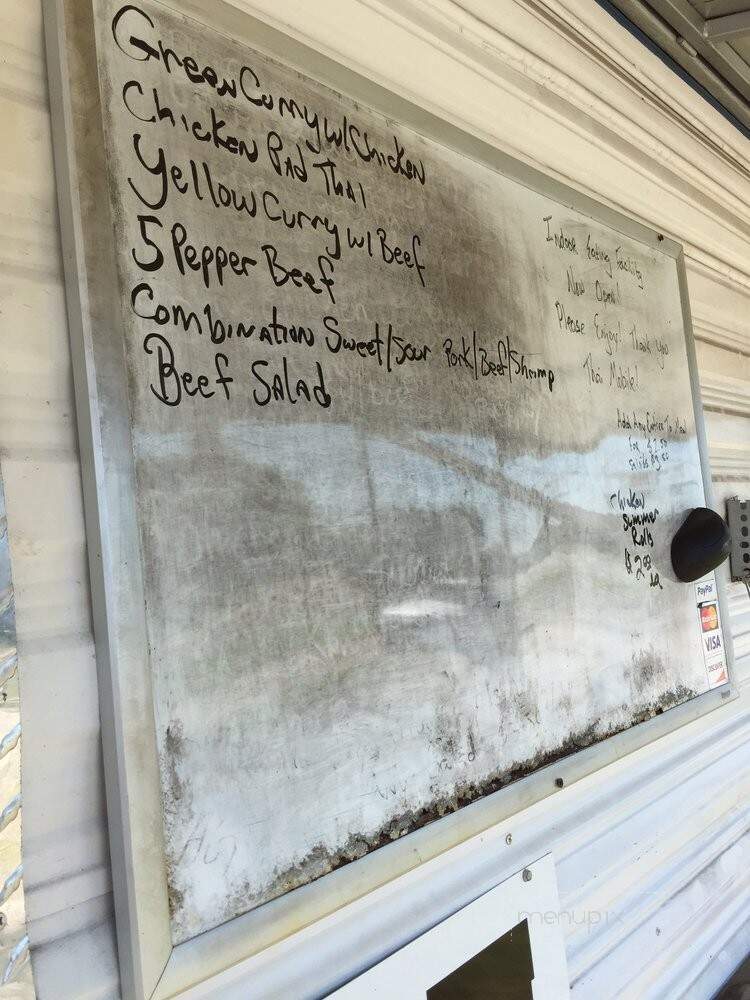 Green Curry w/ Chicken
Chicken Pad Thai
Yellow Curry w/ Beef
5 Pepper Beef
Combination Sweet/Sour Pork/Beef/Shrimp
Beef Salad
Indoor Eating Facility
Now Open!
Please Enjoy! Thank You
Thai Mobile!
Add Any Entree To
For $
Chicken
Summer
Rolls
$2.00
ea
PayPal
MasterCard
VISA
DISCOVER
menupix